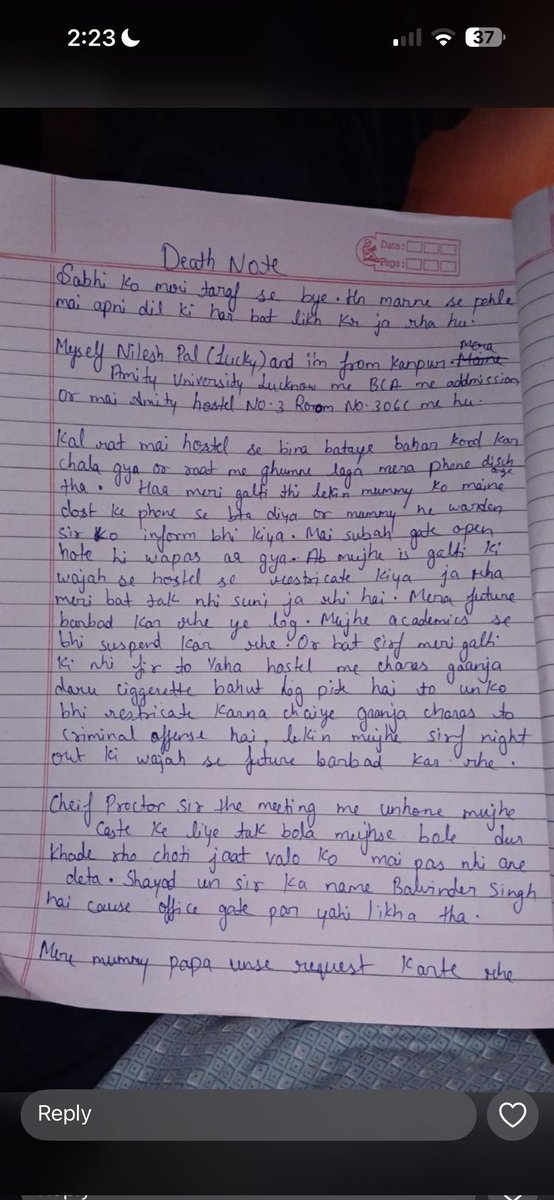 2:23
37
Date:
Page:
Death Note
Sabhi ko meri taraf se bye. Hn marne se pehle
mai apni dil ki har bat likh kr ja rha hu.
Myself Nilesh Pal (Lucky) and i'm from Kanpur. Mera
Amity University Lucknow me BCA me addmission
or mai Amity hostel No.3 Room No.306C me hu.
Kal rat mai hostel se bina bataye bahar kood kar
chala gya or raat me ghumne laga mera phone disch
tha. Haa meri galti thi lekin mummy ko maine
dost ke phone se bta diya or mummy ne warden
sir ko inform bhi kiya. Mai subah gate open
hote hi wapas aa gya. Ab mujhe is galti ki
wajah se hostel se restricate kiya ja rha
meri bat tak nhi suni ja rhi hai. Mera future
barbad kar rhe ye log. Mujhe academics se
bhi suspend kar rhe. Or bat sirf meri galti
ki nhi fir to Yaha hostel me charas gaanja
daru ciggerette bahut log pite hai to unko
bhi restricate karna chaiye gaanja charas to
criminal offense hai, lekin mujhe sirf night
out ki wajah se future barbad kar rhe.
Cheif Proctor Sir the meeting me unhone mujhe
Caste ke liye tak bola mujhse bole dur
khade rho choti jaat valo ko mai pas nhi ane
deta. Shayad un sir ka name Balvinder Singh
hai cause office gate par yahi likha tha.
Mere mummy papa unse request karte rhe
Reply